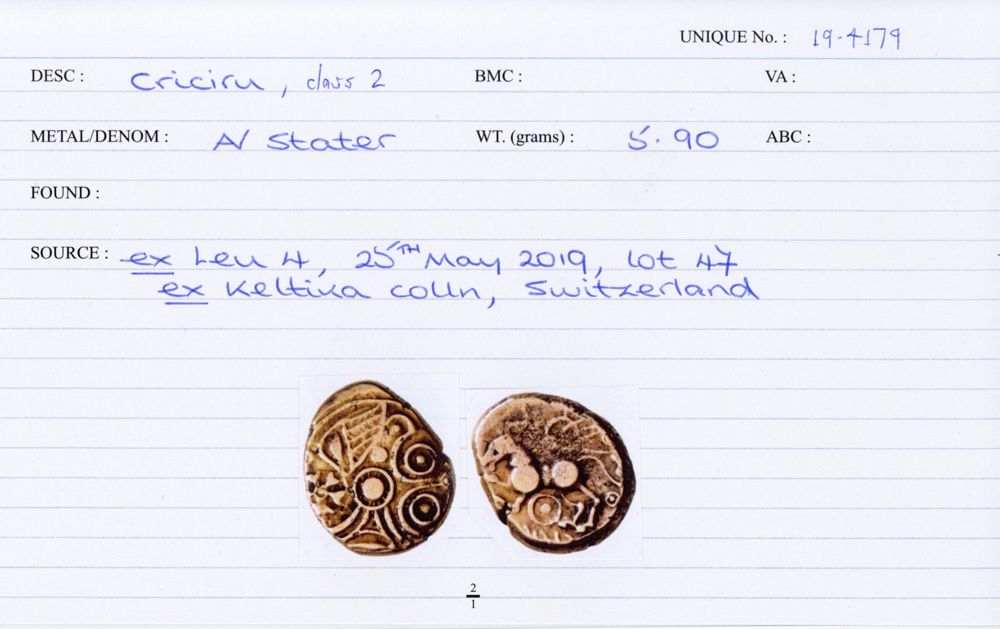 UNIQUE No. : 19-4179
DESC : Criciru, class 2 BMC : VA :
METAL/DENOM : AV Stater WT. (grams) : 5.90 ABC :
FOUND :
SOURCE : ex Leu 4, 25TH May 2019, lot 47
ex Keltika colln, Switzerland
2
1